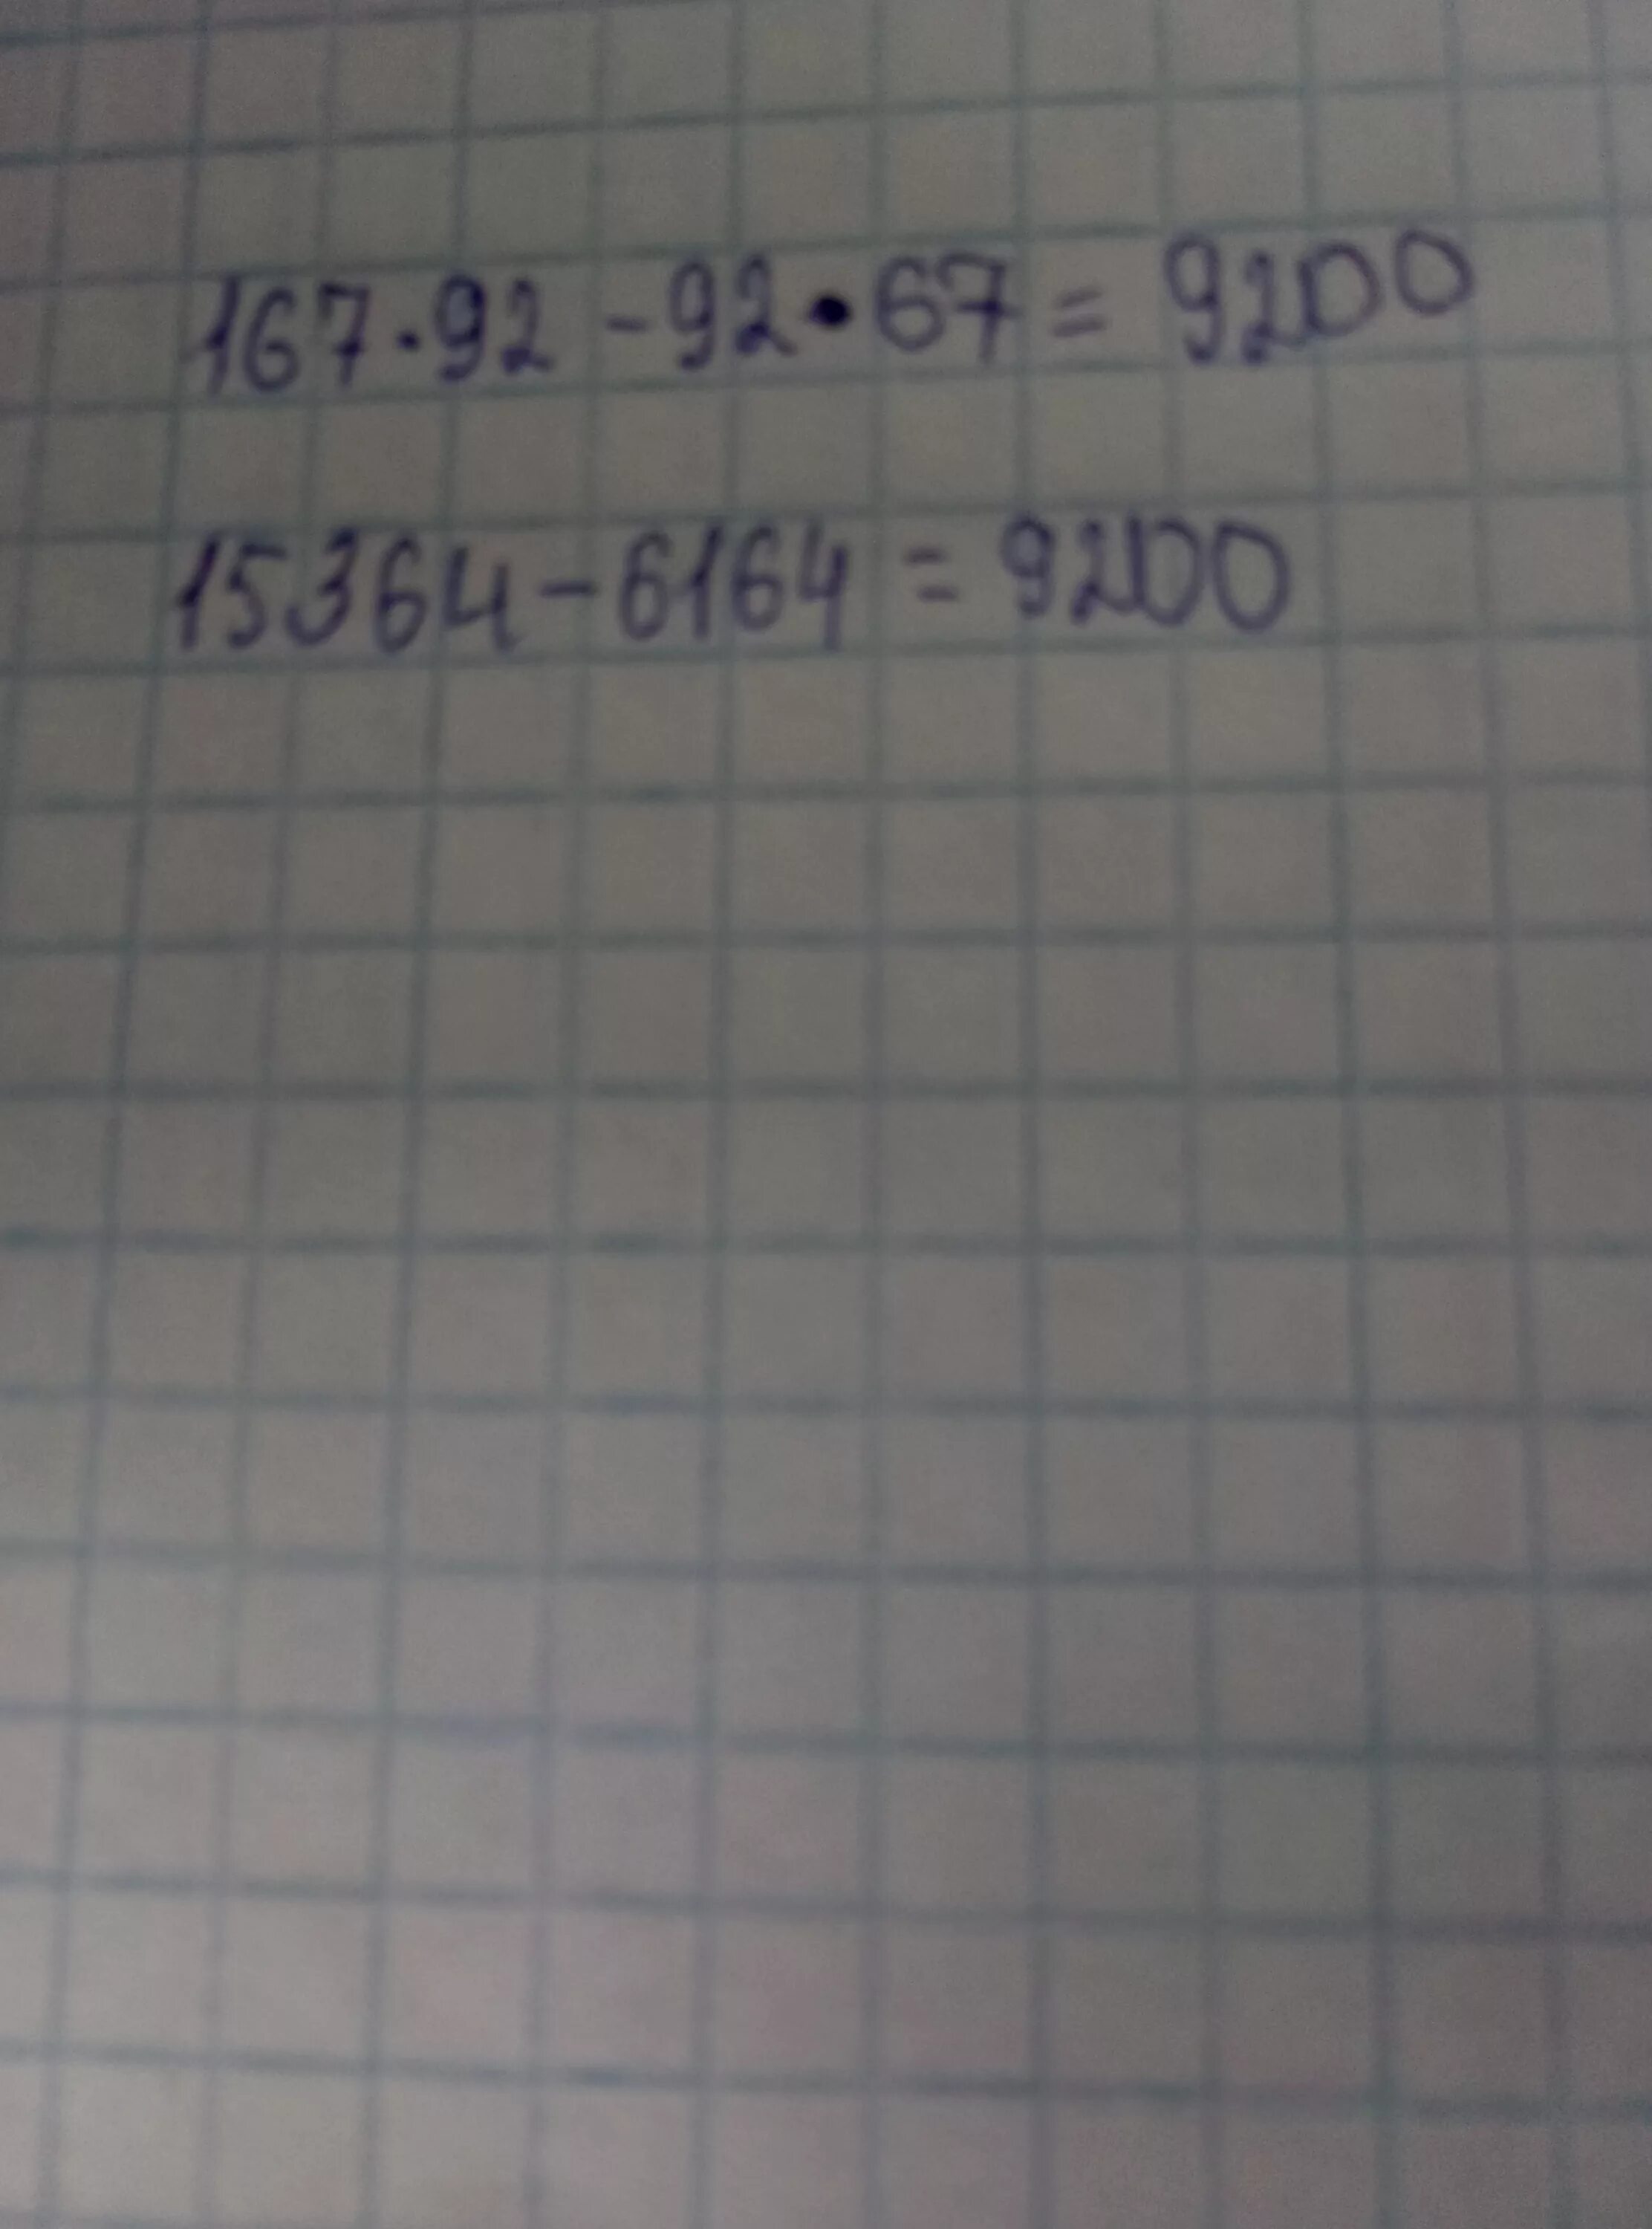 167·92-92·67=9200
15364-6164=9200